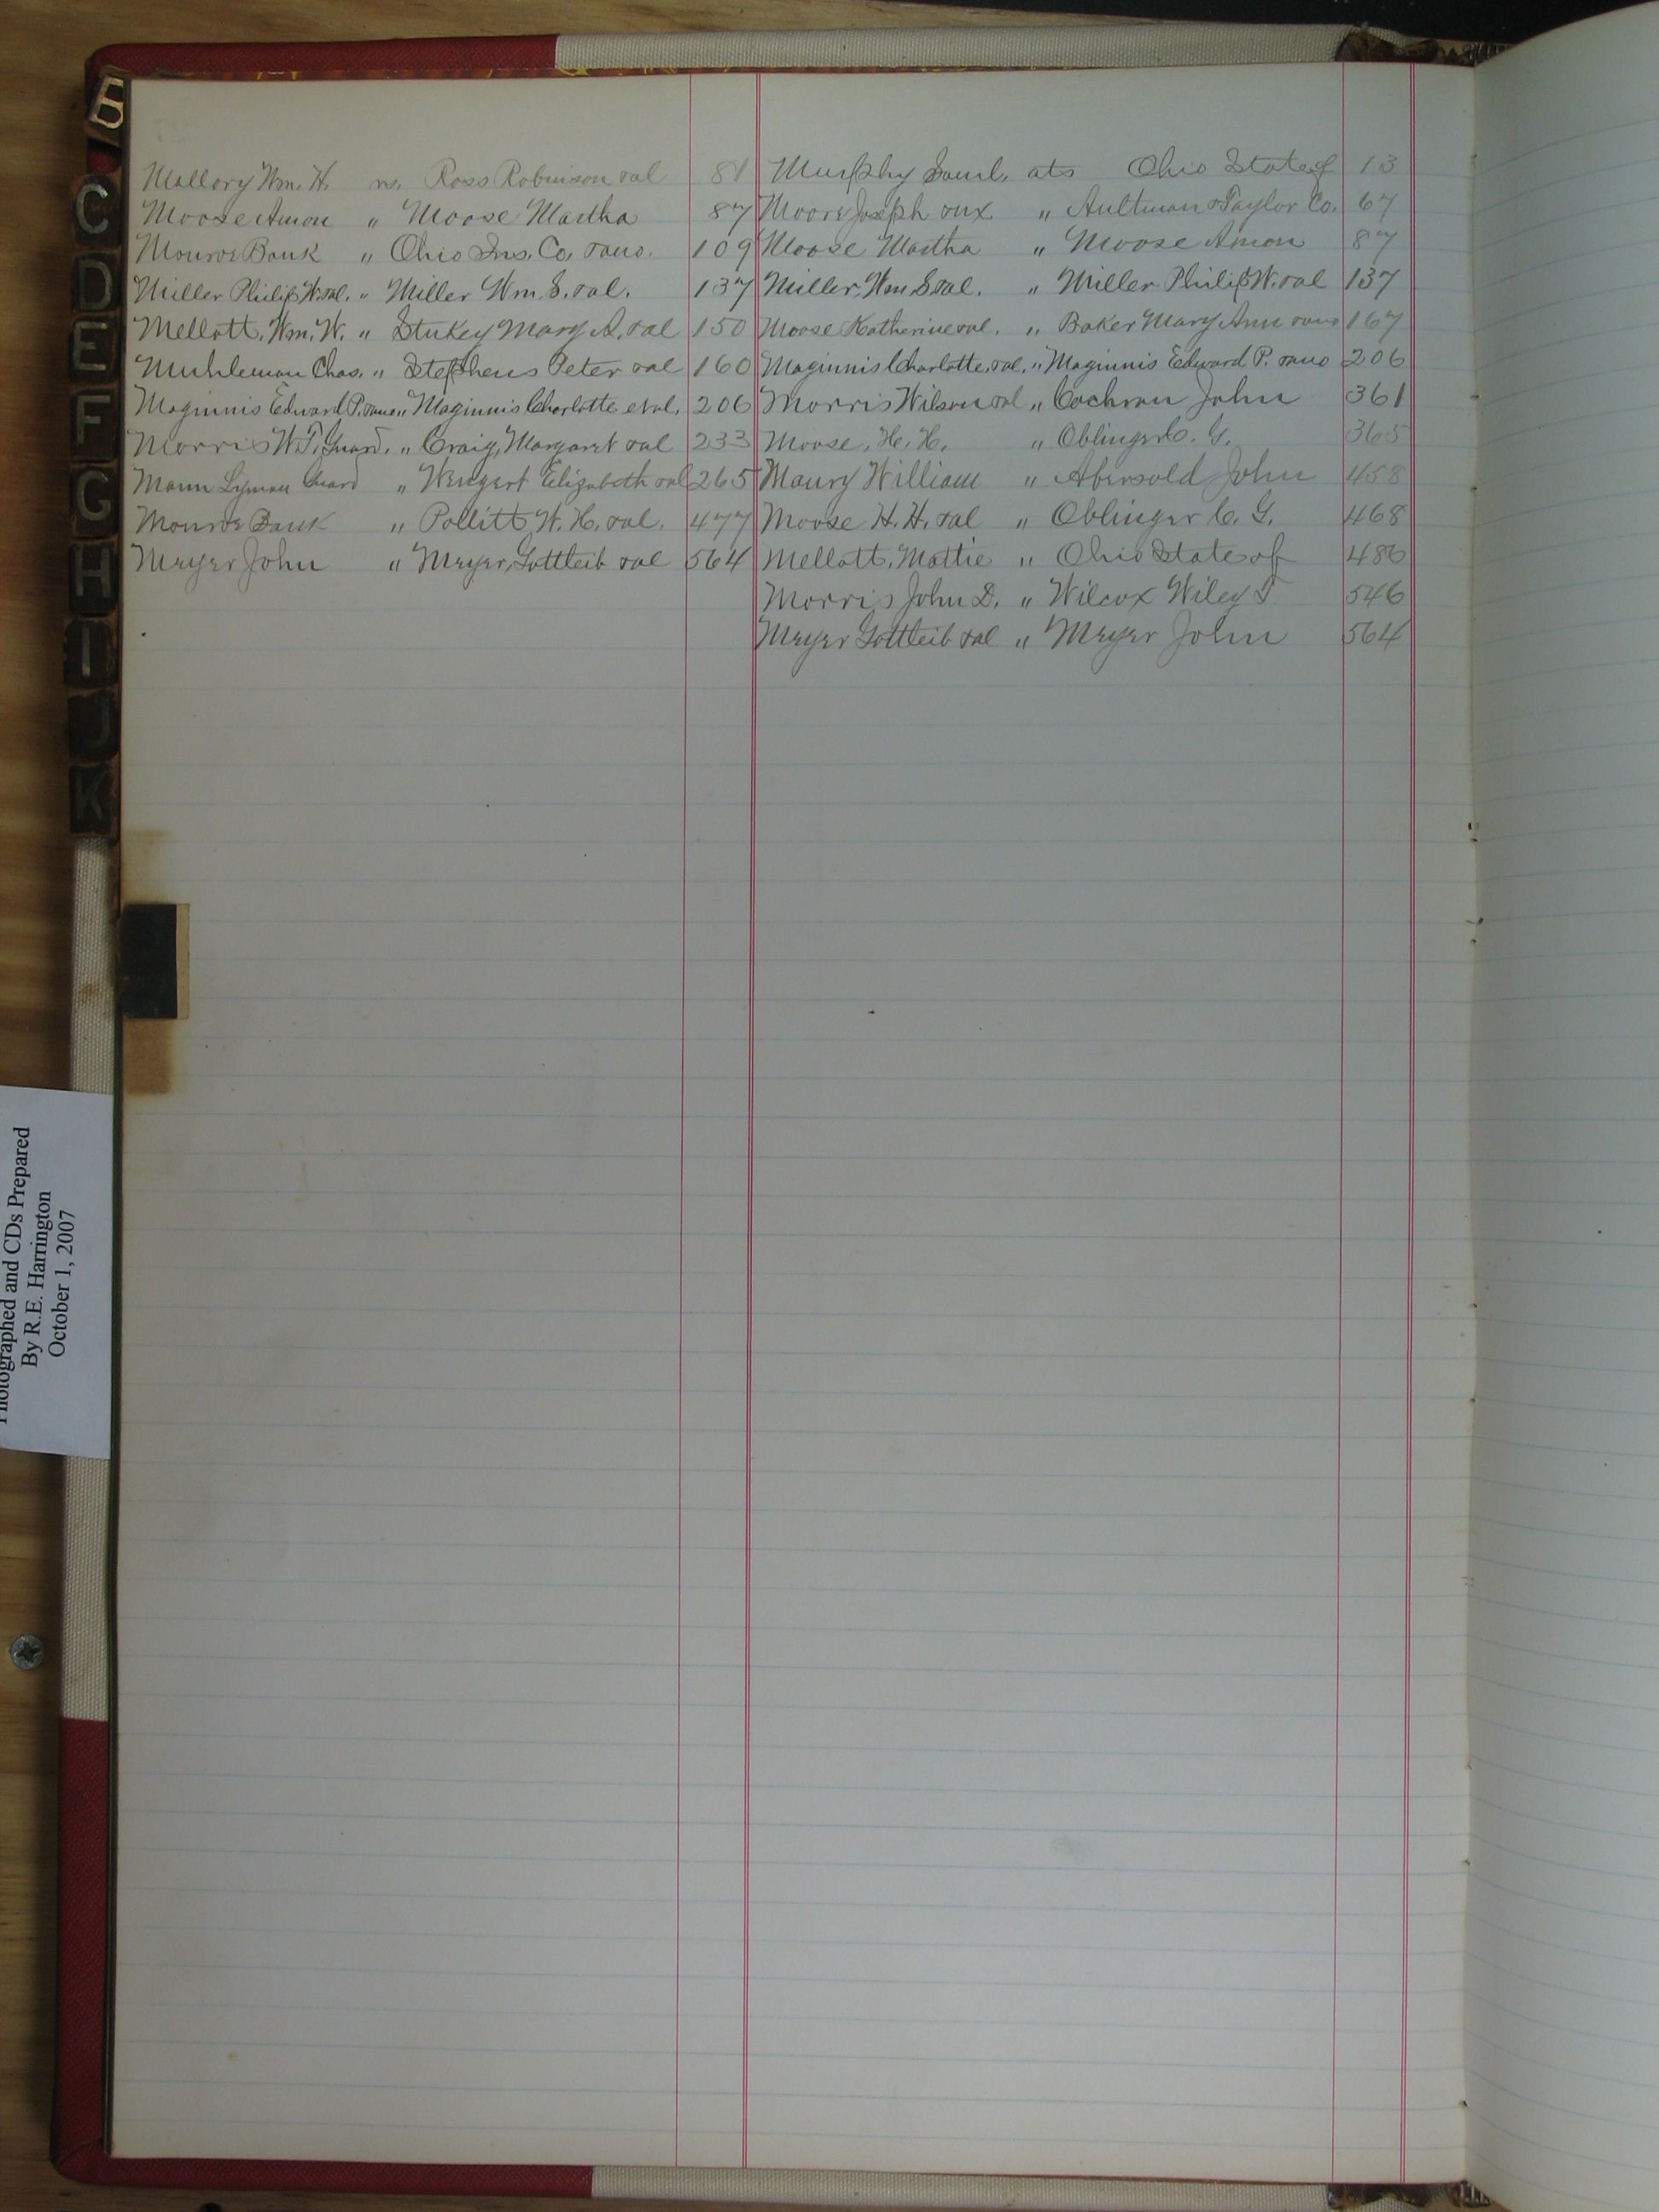 B
C
D
E
F
G
H
I
J
K
Mallory Wm. H. vs. Ross Robinson &al 81
Moose Amon " Moose Martha 87
Monroe Bank " Ohio Ins. Co. &ano. 109
Miller Philip W. &al. " Miller Wm. S. &al. 137
Mellott, Wm. W. " Stukey Mary A. &al 150
Muhleman Chas. " Stephens Peter &al 160
Maginnis Edward P. &ano " Maginnis Charlotte et al. 206
Morris W. T. Guard. " Craig, Margaret &al 233
Mann Lyman Guard " Wengert Elizabeth &al 265
Monroe Bank " Pollitt, W. H. &al. 477
Meyer John " Meyer, Gottleib &al 564
Murphy Saml. ats Ohio State of 13
Moore Joseph &ux " Aultman & Taylor Co. 67
Moose Martha " Moose Amon 87
Miller, Wm S &al. " Miller Philip W. &al 137
Moose Katherine &al. " Baker Mary Ann &ano 167
Maginnis Charlotte, &al. " Maginnis Edward P. &ano 206
Morris Wilson &al " Cochran John 361
Moose, H. H. " Oblinger C. G. 365
Maury William " Abersold John 458
Moose H. H. &al " Oblinger C. G. 468
Mellott, Mattie " Ohio State of 486
Morris John D. " Wilcox Wiley T. 546
Meyer Gottleib &al " Meyer John 564
Photographed and CDs Prepared
By R.E. Harrington
October 1, 2007